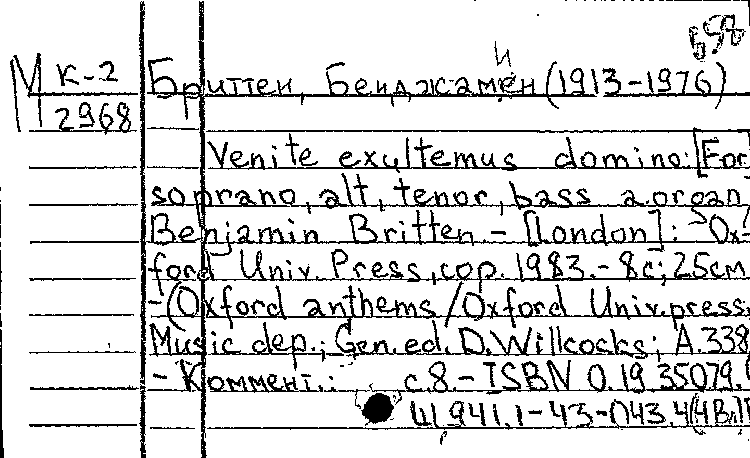 658
М К-2 Бриттен, Бенджамин (1913-1976)
2968
Venite exultemus domino: [For
soprano, alt, tenor, bass a. organ
Benjamin Britten. - [London]: Ox-
ford Univ. Press, cop. 1983. - 8 с; 25 см
- (Oxford anthems / Oxford Univ. press;
Music dep.; Gen. ed. D. Willcocks; A.338
- Коммент.: с. 8. - ISBN 0.19 35079.
Щ 941.1-43-043.4(4Вл)